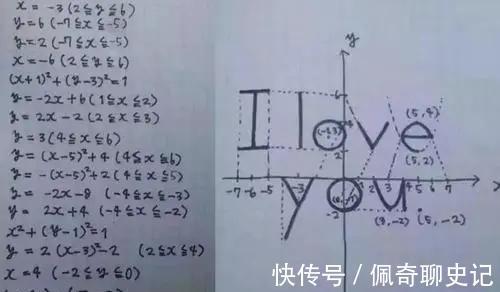 x = -3 (2 ≦ y ≦ 6)
y = 6 (-7 ≦ x ≦ -5)
y = 2 (-7 ≦ x ≦ -5)
x = -6 (2 ≦ y ≦ 6)
(x+1)² + (y-3)² = 1
y = -2x + 6 (1 ≦ x ≦ 2)
y = 2x - 2 (2 ≦ x ≦ 3)
y = 3 (4 ≦ x ≦ 6)
y = (x-5)² + 4 (4 ≦ x ≦ 6)
y = -(x-5)² + 2 (4 ≦ x ≦ 5)
y = -2x - 8 (-4 ≦ x ≦ -3)
y = 2x + 4 (-4 ≦ x ≦ -2)
x² + (y-1)² = 1
y = 2 (x-3)² - 2 (2 ≦ x ≦ 4)
x = 4 (-2 ≦ y ≦ 0)
y
6
I love
(-1,3)
4
(5,4)
2
(5,2)
-7 -6 -5 1 2 3 4 5 6 7 x
you
-2
(3,-2) (5,-2)
快传号/佩奇聊史记